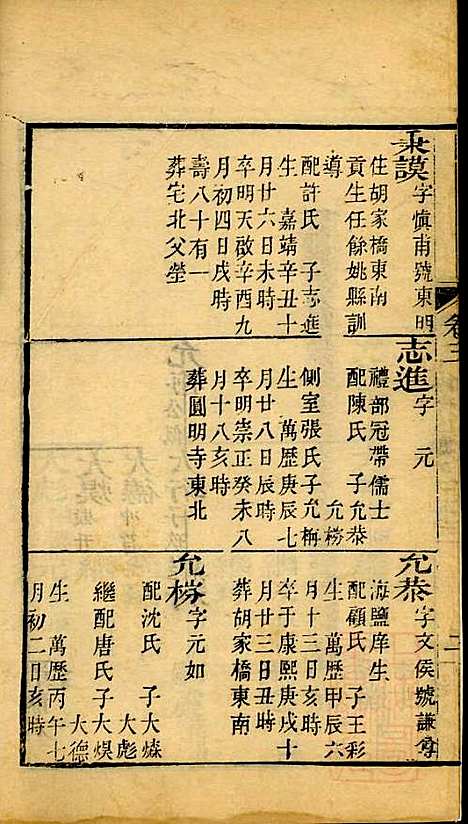 秉謨字愼甫號東明
住胡家橋東南
貢生任餘姚縣訓
導
配許氏 子志進
生 嘉靖辛丑十
月廿六日未時
卒明天啟辛酉九
月初四日戌時
壽八十有一
葬宅北父塋
卷三
志進字 元
禮部冠帶儒士
配陳氏 子允恭
允榜
側室張氏子允梅
生 萬歷庚辰七
月廿八日辰時
卒明崇正癸未八
月十八亥時
葬圓明寺東北
二
允恭字文侯號謙尊
海鹽庠生
配顧氏 子王彩
生 萬歷甲辰六
月十三日亥時
卒于康熙庚戌十
月廿三日丑時
葬胡家橋東南
允榜字元如
配沈氏 子大燦
大彪
繼配唐氏子大煐
大德
生 萬歷丙午七
月初二日亥時